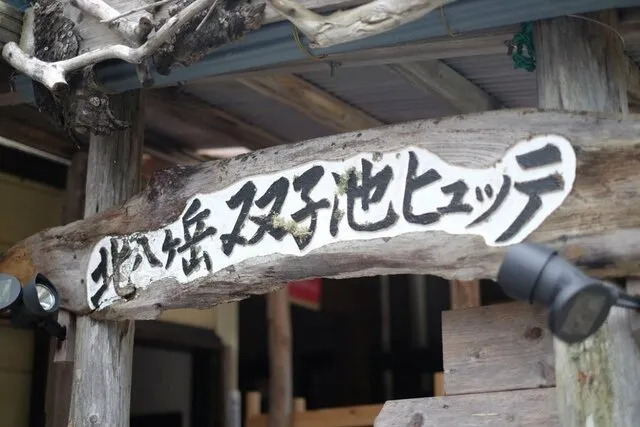 北八ヶ岳双子池ヒュッテ